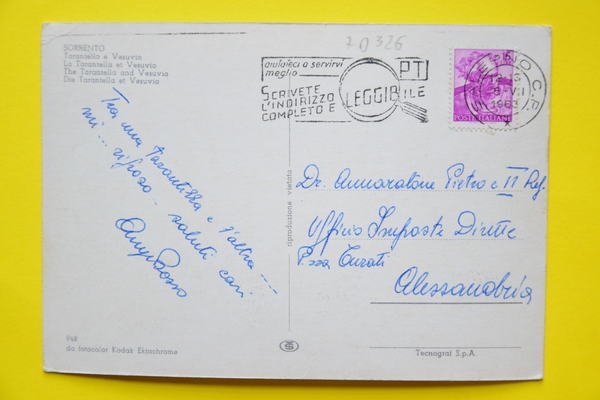 2D 326
SORRENTO
Tarantella e Vesuvio
La Tarantella et Vesuvio
The Tarantella and Vesuvio
Die Tarantella et Vesuvio
aiutateci a servirvi
meglio
SCRIVETE
L'INDIRIZZO
COMPLETO E
LEGGIBILE
PT
8-VII
1963
POSTE ITALIANE
Tra una tarantella e l'altra ....
mi ... riposo - saluti cari
riproduzione vietata
Dr. Annaratone Pietro e II Rep.
Ufficio Imposte Dirette
P.zza Turati
Alessandria
948
da fotocolor Kodak Ektachrome
Tecnograf S.p.A.